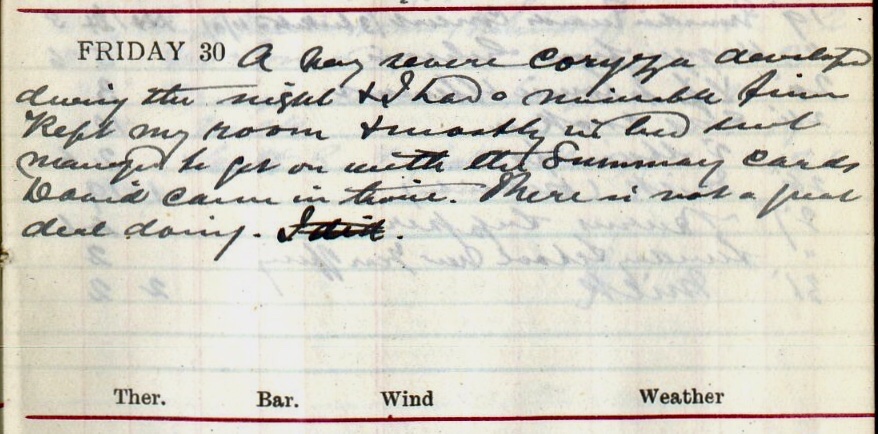 FRIDAY 30 A very severe coryza developed
during the night & I had a miserable time
Kept my room & mostly in bed but
managed to get on with the Summary cards
David came in twice. There is not a great
deal doing. I did.
Ther. Bar. Wind Weather